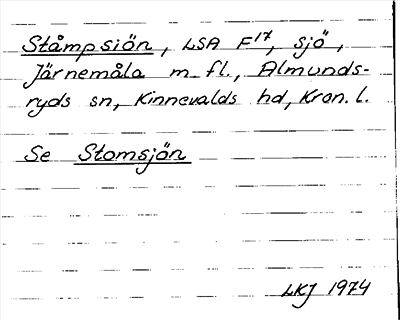 Ståmpsiön, LSA F17, sjö,
Järnemåla m. fl., Almunds-
ryds sn, Kinnevalds hd, Kron. l.
Se Stomsjön
LKJ 1974